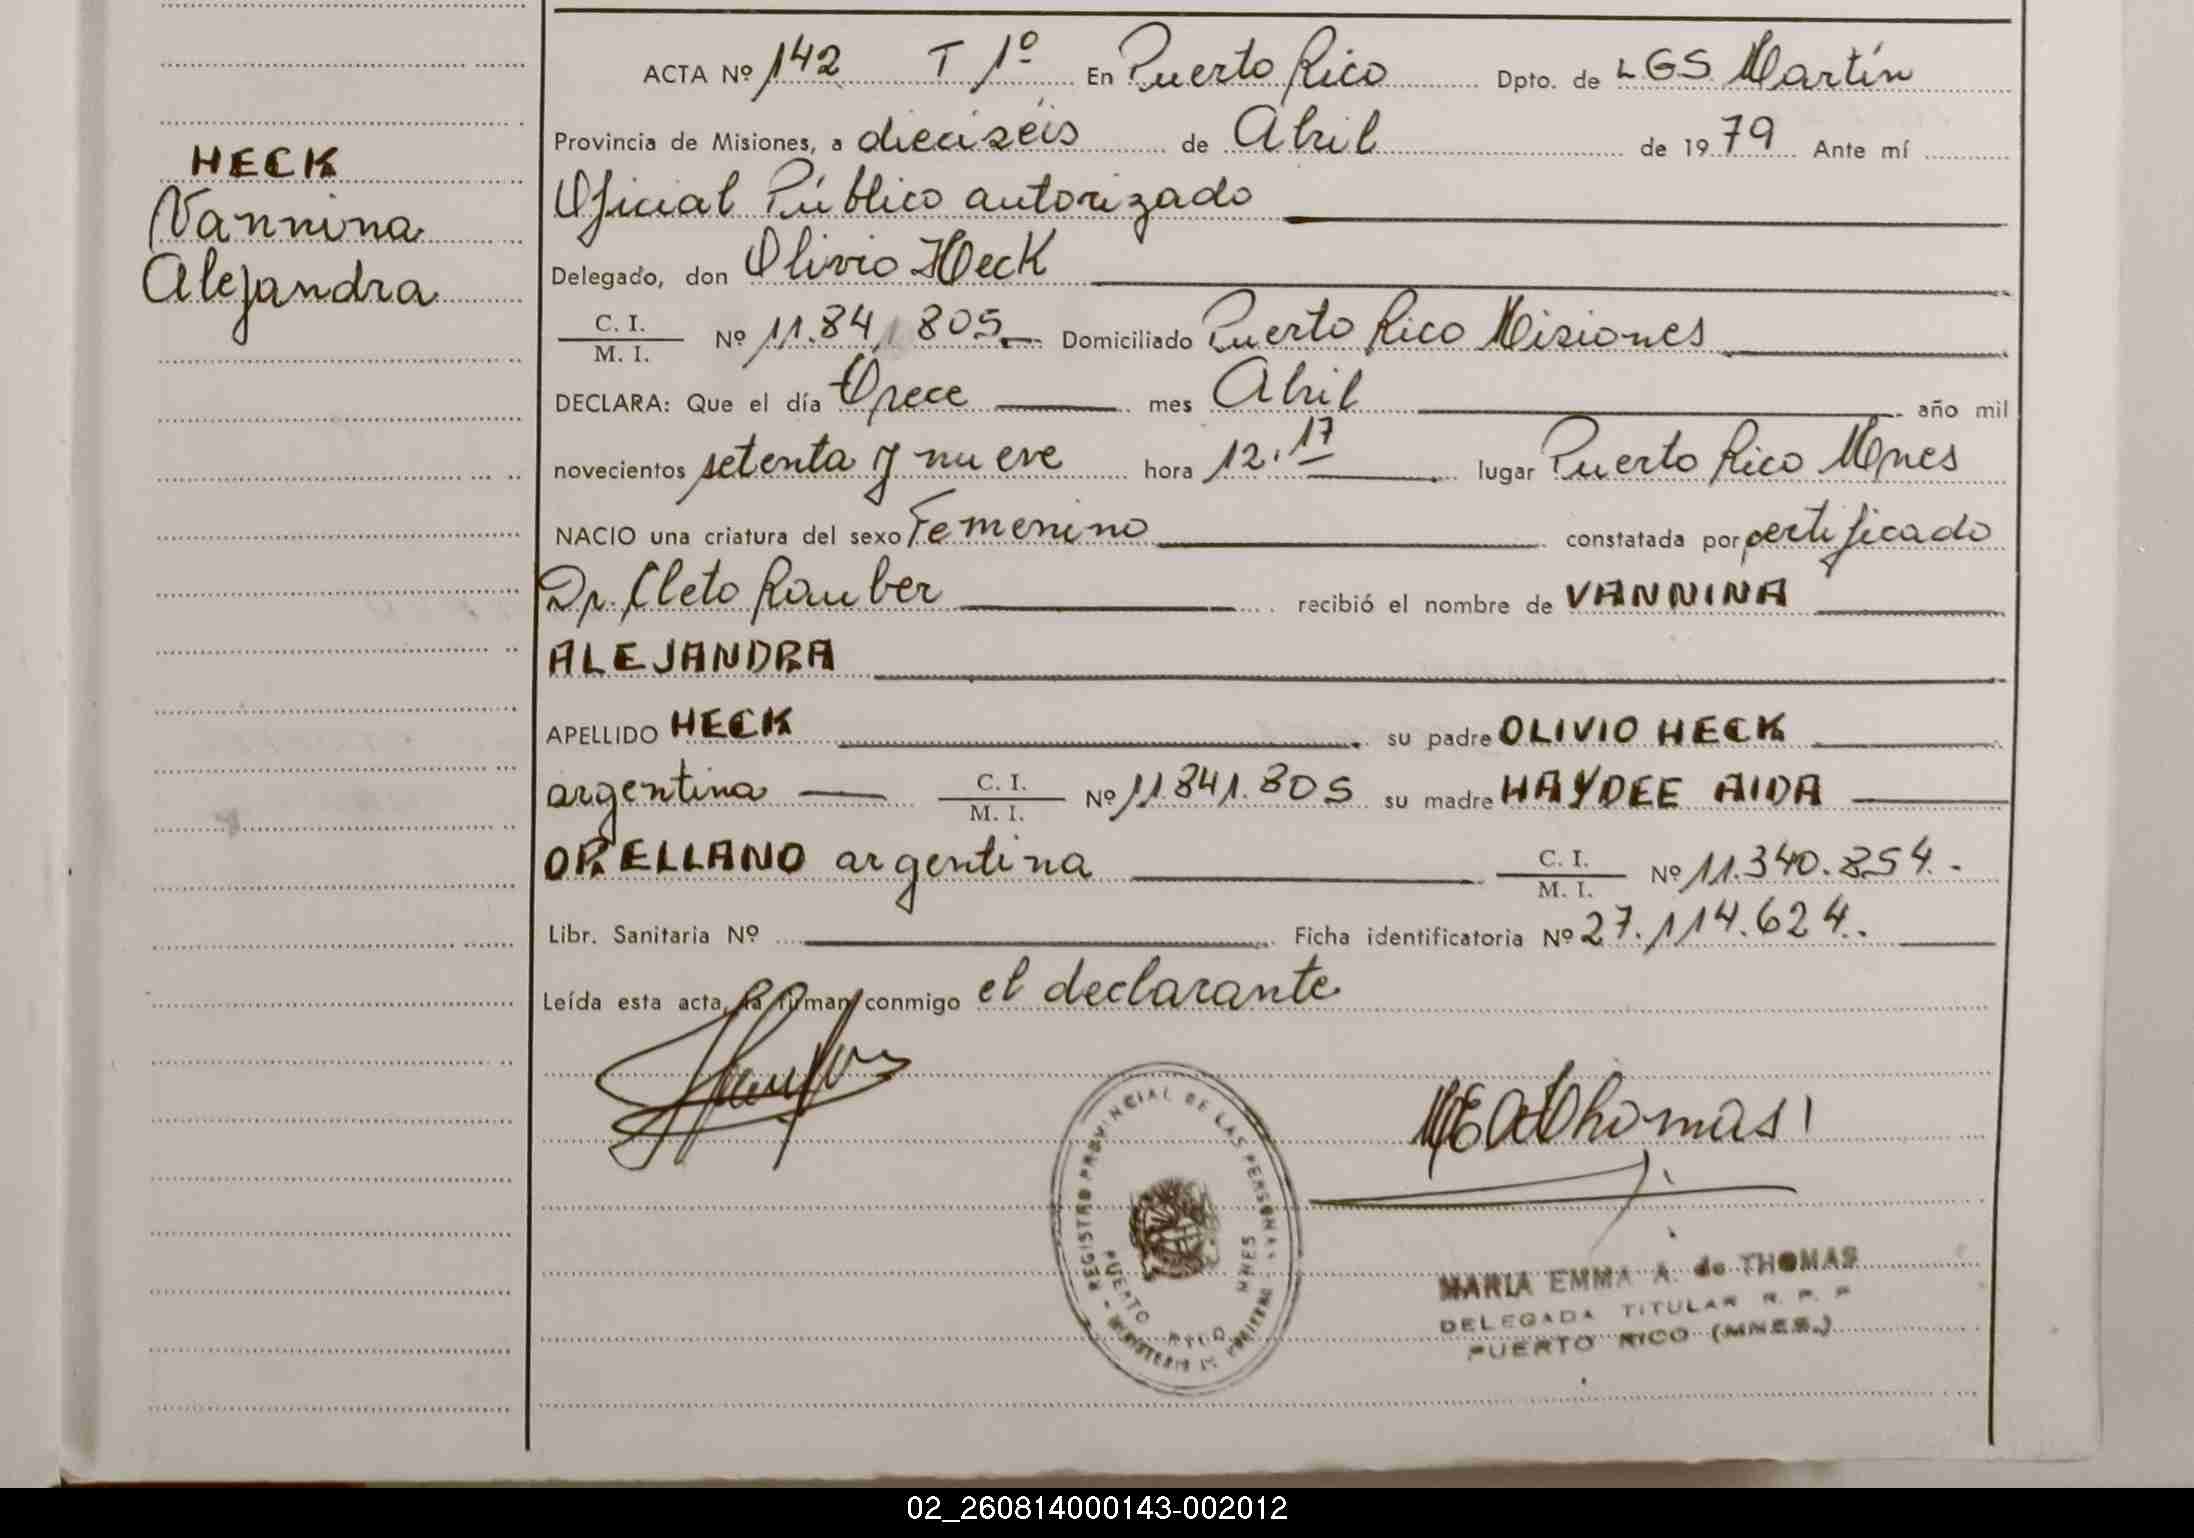 HECK
Vannina
Alejandra
ACTA Nº 142 T 1º En Puerto Rico Dpto. de LGS Martín
Provincia de Misiones, a dieciséis de Abril de 1979 Ante mí
Oficial Público autorizado
Delegado, don Olivio Heck
C. I. / M. I. Nº 11.841.805 Domiciliado Puerto Rico Misiones
DECLARA: Que el día Trece mes Abril año mil
novecientos setenta y nueve hora 12.17 lugar Puerto Rico Mnes
NACIO una criatura del sexo Femenino constatada por certificado
Dr. Cleto Rauber recibió el nombre de VANNINA
ALEJANDRA
APELLIDO HECK su padre OLIVIO HECK
argentina C. I. / M. I. Nº 11.841.805 su madre HAYDEE AIDA
ORELLANO argentina C. I. / M. I. Nº 11.340.854.-
Libr. Sanitaria Nº Ficha identificatoria Nº 27.114.624.
Leída esta acta, la firman conmigo el declarante
MEAdThomas
REGISTRO PROVINCIAL DE LAS PERSONAS
PUERTO RICO MNES
MARIA EMMA A. de THOMAS
DELEGADA TITULAR R. P. P
PUERTO RICO (MNES.)
02_260814000143-002012